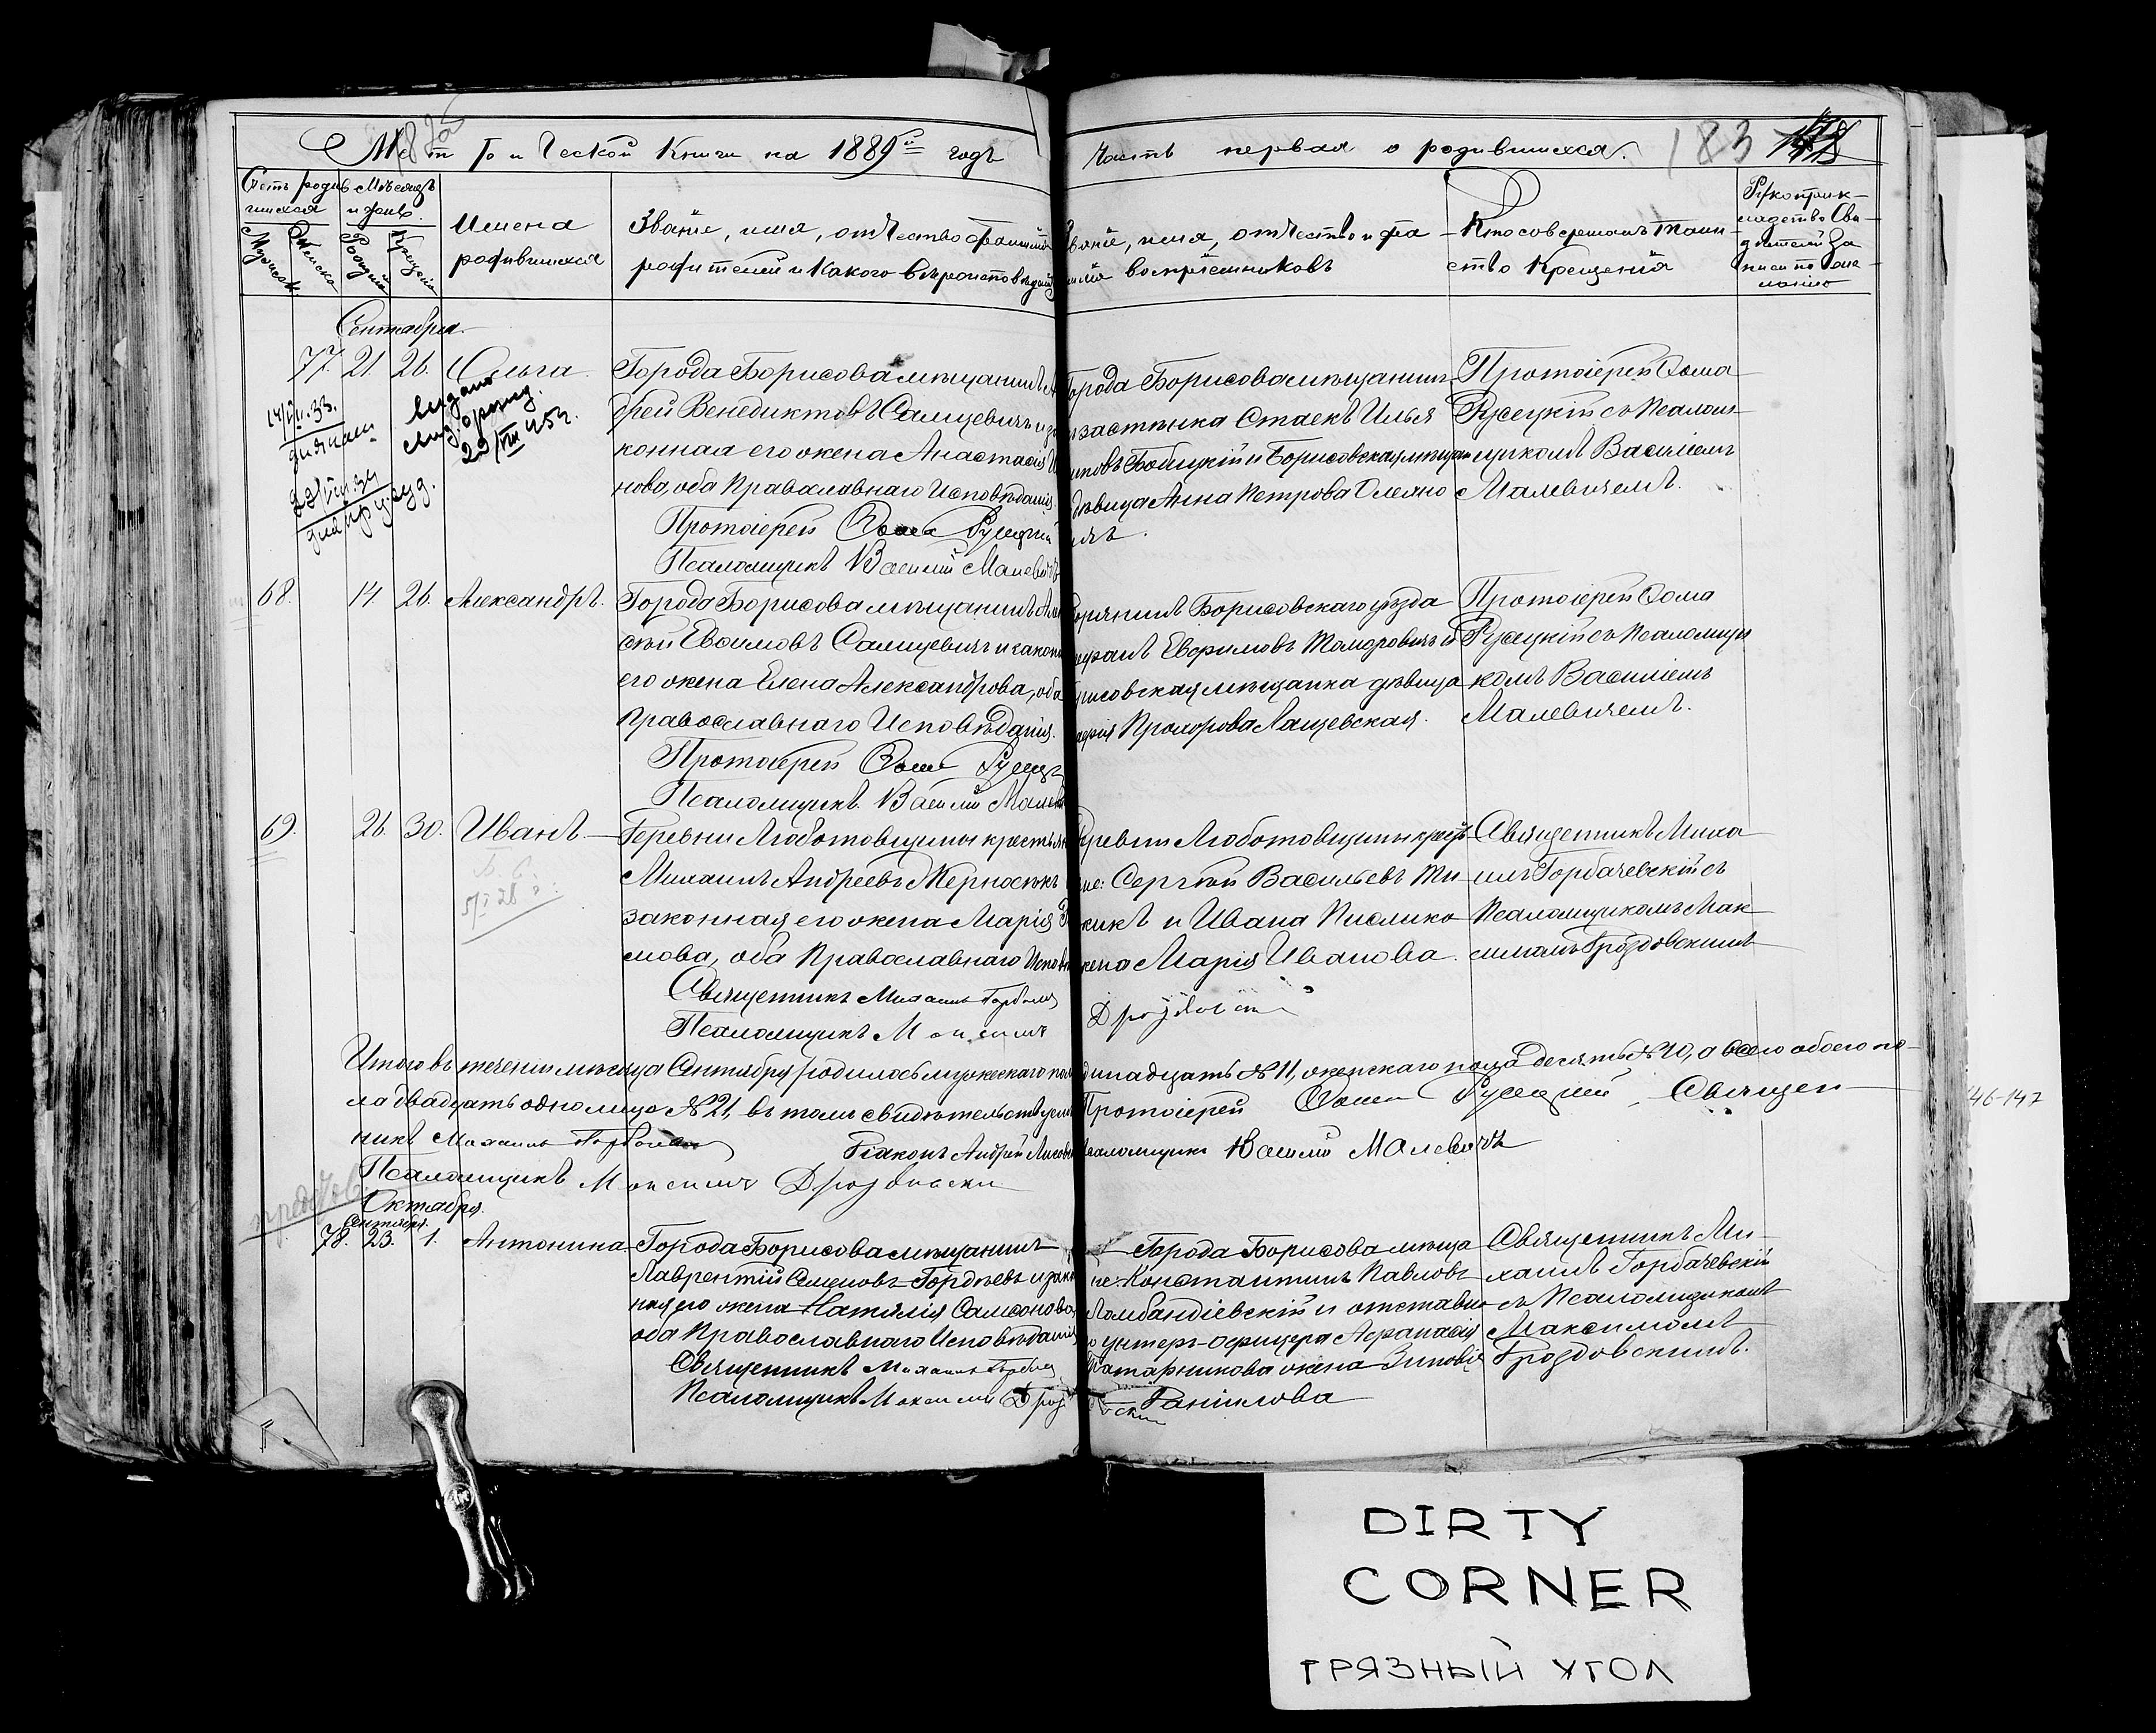 Метрической Книги на 1889й годъ
Часть первая о родившихся.
183
Счетъ родив
шихся
Мѣсяцъ
и день.
Имена
родившихся
Званіе, имя, отчество и фамилія
родителей и какого вѣроисповѣданія
Званіе, имя, отчество и фа
милія воспріемниковъ
Кто совершалъ таин
ство Крещенія
Рукоприк-
ладство сви-
дѣтелей за
писи по же
ланію
Мужеск.
Женска
Рожденія
Крещенія
Сентября.
77. 21. 26. Ольга.
Города Борисова мѣщанинъ Ан
дрей Венедиктовъ Самцевичъ и за
конная его жена Анастасія
нова, оба Православнаго Исповѣданія.
Протоіерей Ѳома Русецкій
Псаломщикъ Василій Малевичъ
Города Борисова мѣщанинъ
застѣнка Стаекъ Илья
новъ Бобицкій и Борисовская мѣщан
дѣвица Анна Петрова
Протоіерей Ѳома
Русецкій съ Псалом-
щикомъ Василіемъ
Малевичемъ.
выдано
свид. о рожд.
29/VIII 45 г.
68. 14. 26. Александръ.
Города Борисова мѣщанинъ Але
ксѣй Евѳимовъ Самцевичъ и законн
его жена Елена Александрова, оба
Православнаго Исповѣданія.
Протоіерей Ѳома Русецк
Псаломщикъ Василій Малеви
Дворянинъ Борисовскаго уѣзда
Евфимовъ Томоровичъ и
Борисовская мѣщанка дѣвица
Прохорова Лащевская.
Протоіерей Ѳома
Русецкій съ Псаломщи
комъ Василіемъ
Малевичемъ.
69. 26. 30. Иванъ.
Деревни Люботовщины крестьян
Михаилъ Андреевъ Жерносѣкъ
законная его жена Марія
мова, оба Православнаго Исповѣ
Священникъ Михаилъ Горбачев
Псаломщикъ Максимъ
Дроздовскій
Деревни Люботовщины крестья
не: Сергѣй Васильевъ
и Ивана
жена Марія Иванова.
Священникъ Миха
илъ Горбачевскій съ
Псаломщикомъ Мак
симомъ Дроздовскимъ
Итого въ теченіи мѣсяца Сентября родилось мужескаго пола
одинадцать № 11, женскаго пола десять № 10, а всего обоего по-
ла двадцать одно лицо № 21, въ томъ свидѣтельствуемъ
Протоіерей Ѳома Русецкій, Священ-
никъ Михаилъ Горбачевскій
Діаконъ Андрей
Псаломщикъ Василій Малевичъ
Псаломщикъ Максимъ Дроздовскій
Октября.
Сентября.
78. 23. 1. Антонина
Города Борисова мѣщанинъ
Лаврентій Семеновъ Гордѣевъ и закон
ная его жена Наталія Самсонова,
оба Православнаго Исповѣданія
Священникъ Михаилъ Горбачев
Псаломщикъ Максимъ Дроз
довскій
Города Борисова мѣща
не: Константинъ Павловъ
Ломбандіевскій и отставно
го унтеръ-офицера Аѳанасія
Татарникова жена Зиновія
Данилова
Священникъ Ми-
хаилъ Горбачевскій
съ Псаломщикомъ
Максимомъ
Дроздовскимъ.
46-147
DIRTY
CORNER
ГРЯЗНЫЙ УГОЛ